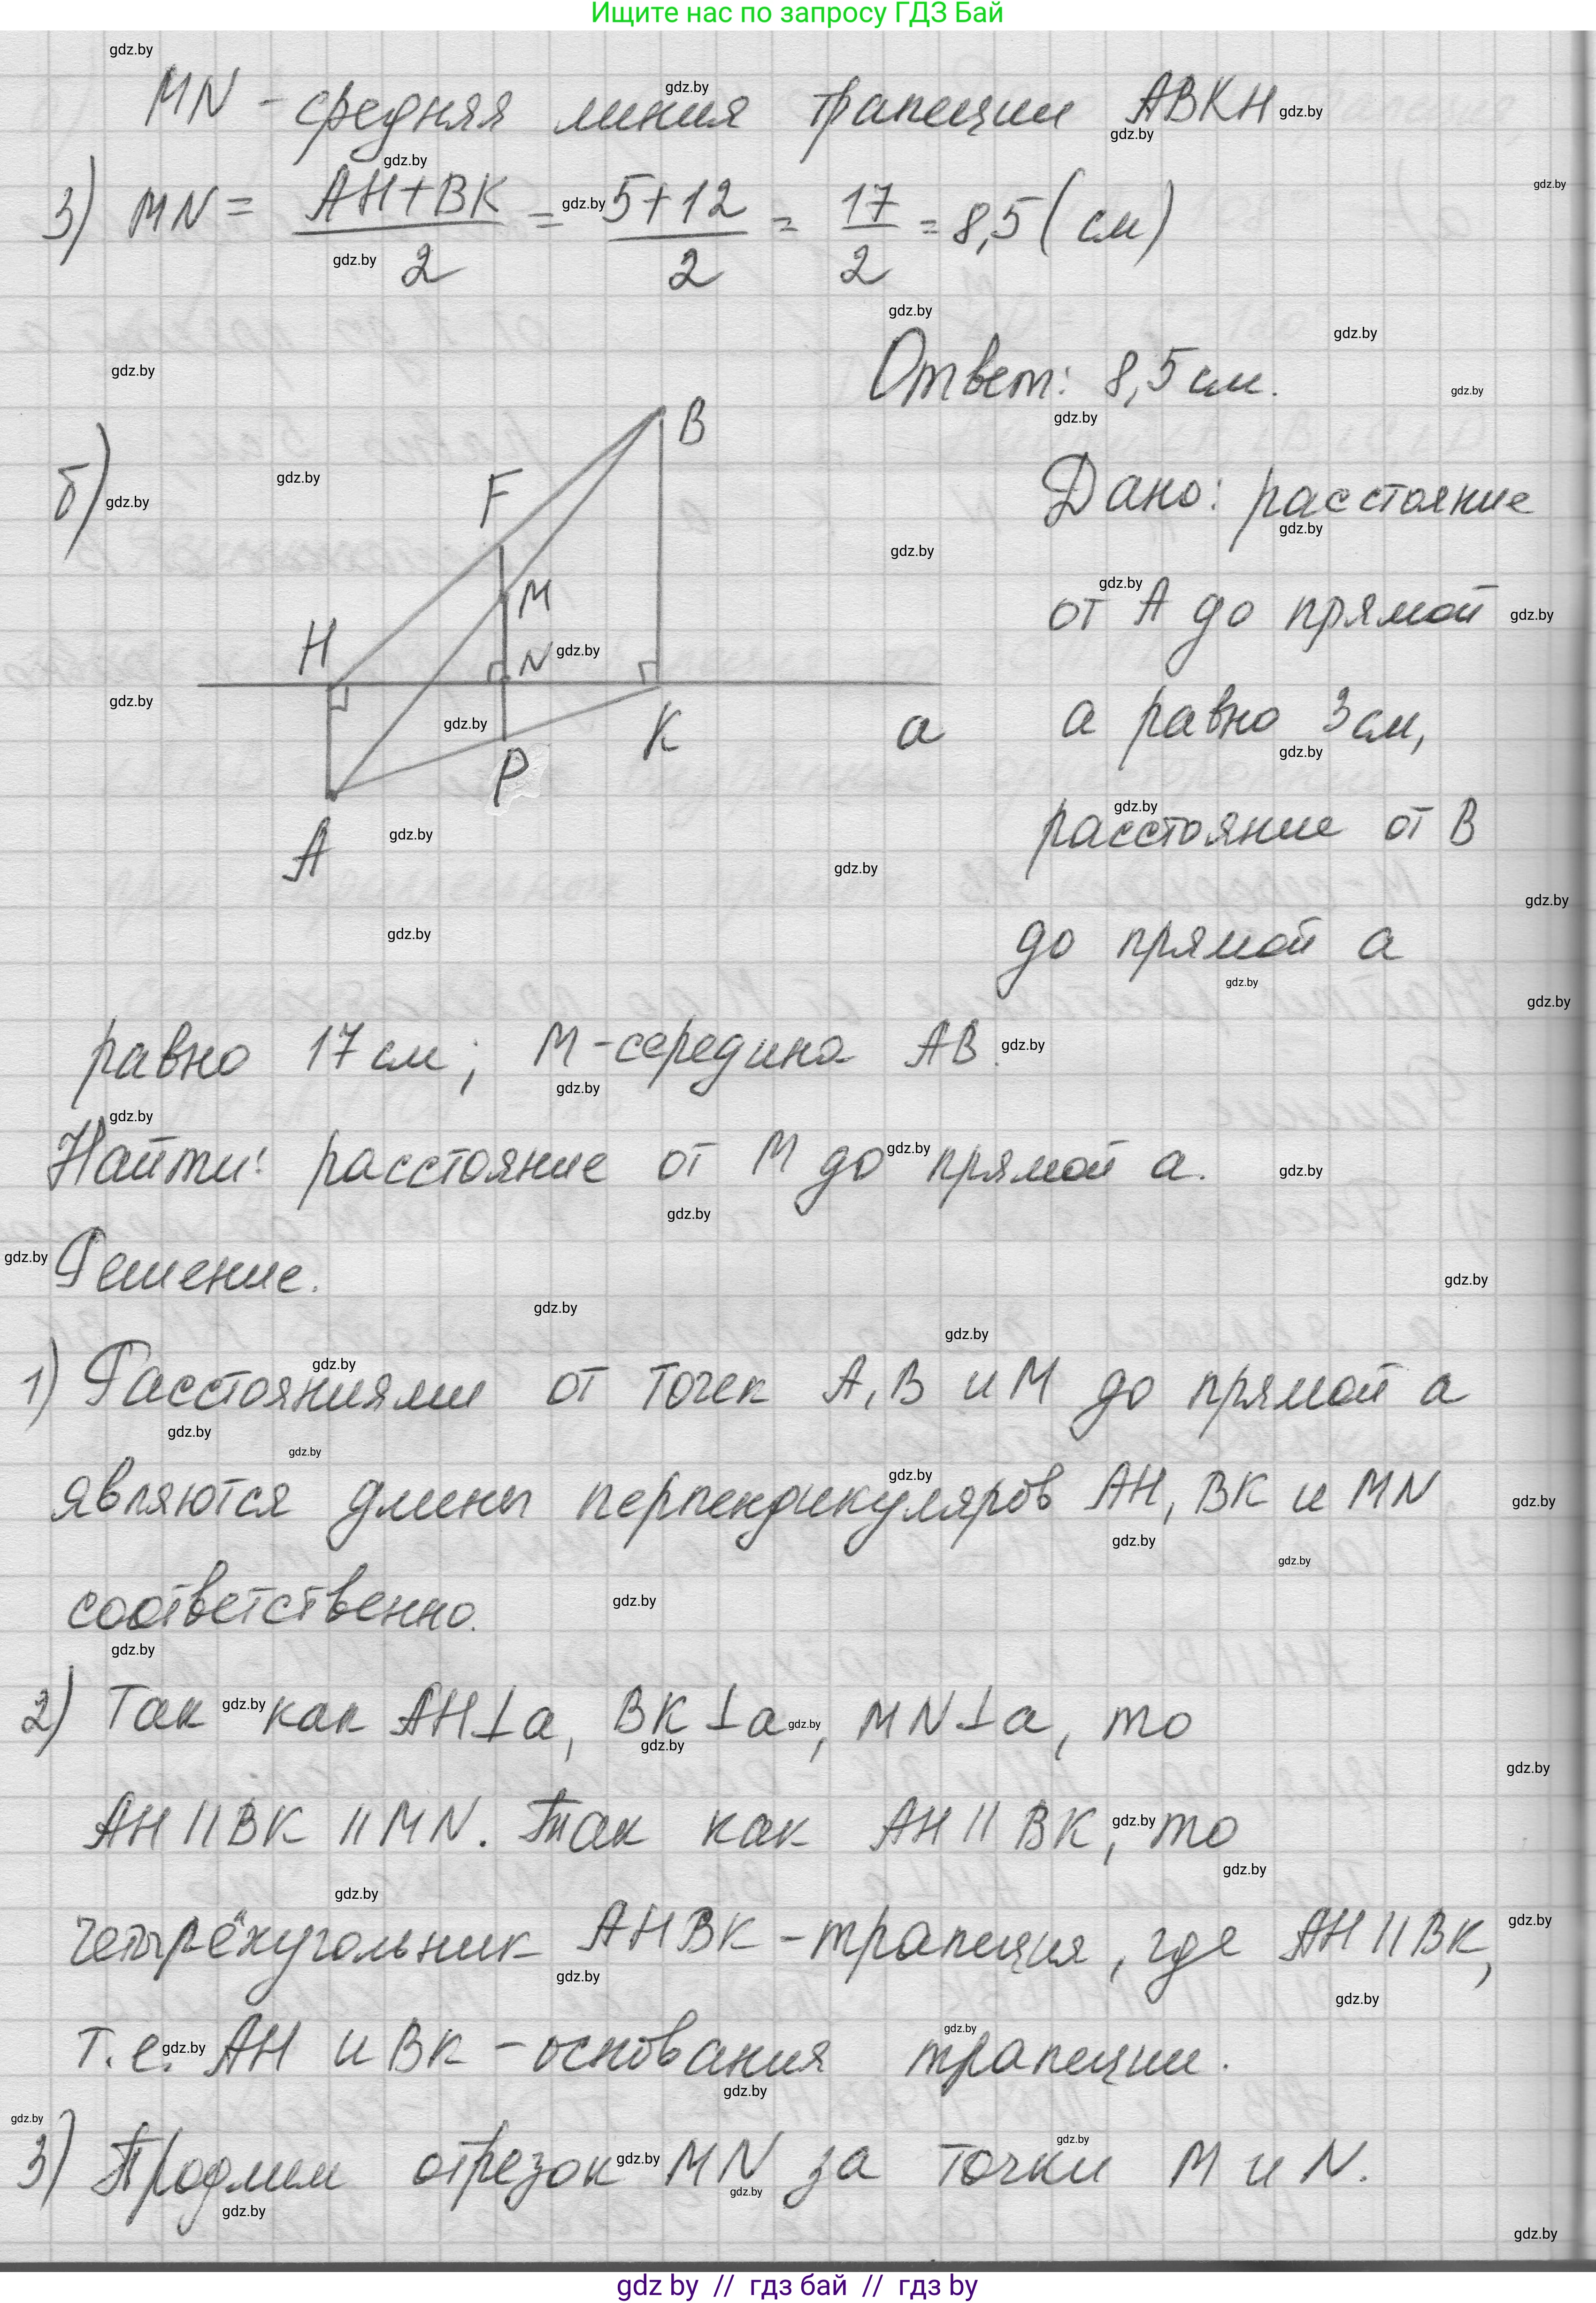 Ищите нас по запросу ГДЗ Бай
MN - средняя линия трапеции ABKH
3) MN = (AH+BK)/2 = (5+12)/2 = 17/2 = 8,5 (см)
Ответ: 8,5 см.
б)
B
F
M
H
N
K
a
P
A
Дано: расстояние
от A до прямой
a равно 3 см,
расстояние от B
до прямой a
равно 17 см; M - середина AB.
Найти: расстояние от M до прямой a.
Решение.
1) Расстояниями от точек A, B и M до прямой a
являются длины перпендикуляров AH, BK и MN
соответственно.
2) Так как AH⊥a, BK⊥a, MN⊥a, то
AH || BK || MN. Так как AH || BK, то
четырёхугольник AHBK - трапеция, где AH || BK,
т.е. AH и BK - основания трапеции.
3) Продлим отрезок MN за точки M и N.
gdz by // гдз бай // гдз by